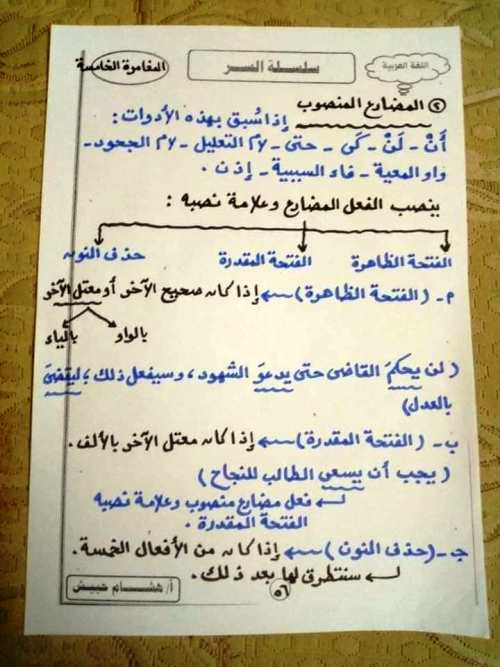 اللغة العربية
سلسلة السر
المغامرة الخامسة
٢ المضارع المنصوب إذا سُبق بهذه الأدوات:
أَنْ - لَنْ - كَى - حتى - لام التعليل - لام الجحود -
واو المعية - فاء السببية - إذن .
ينصب الفعل المضارع وعلامة نصبه :
الفتحة الظاهرة الفتحة المقدرة حذف النون
م - ( الفتحة الظاهرة ) إذا كان صحيح الآخر أو معتل الآخر
بالواو بالياء
( لن يحكمَ القاضى حتى يدعوَ الشهود ، وسيفعل ذلك ؛ ليقضىَ
بالعدل)
ب - ( الفتحة المقدرة ) إذا كان معتل الآخر بالألف .
( يجب أن يسعى الطالب للنجاح )
فعل مضارع منصوب وعلامة نصبه
الفتحة المقدرة .
جـ - (حذف النون ) إذا كان من الأفعال الخمسة .
سنتطرق لها بعد ذلك .
أ/ هشام حبيش
٥٦